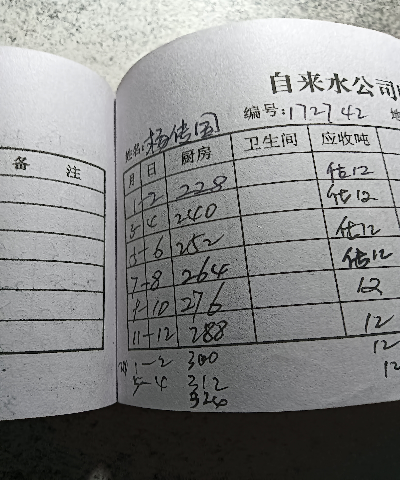 自来水公司
编号:172742
姓名:杨传国
备 注
月 日 厨房 卫生间 应收吨
1-2 228 估12
3-4 240 估12
5-6 252 估12
7-8 264 估12
9-10 276 12
11-12 288 12
1-2 300 12
3-4 312 12
324